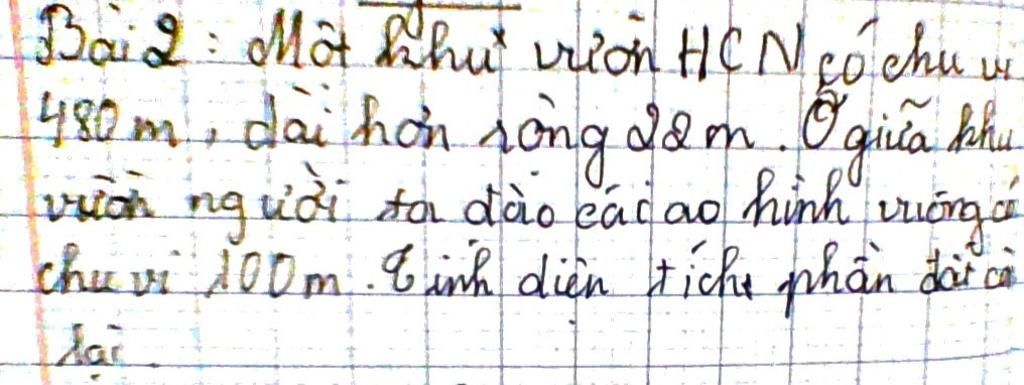 Bài 2: Một khu vườn HCN có chu vi
480 m, dài hơn rộng 22 m. Ở giữa khu
vườn người ta đào cái ao hình vuông có
chu vi 100 m. Tính diện tích phần đất cò
lại.